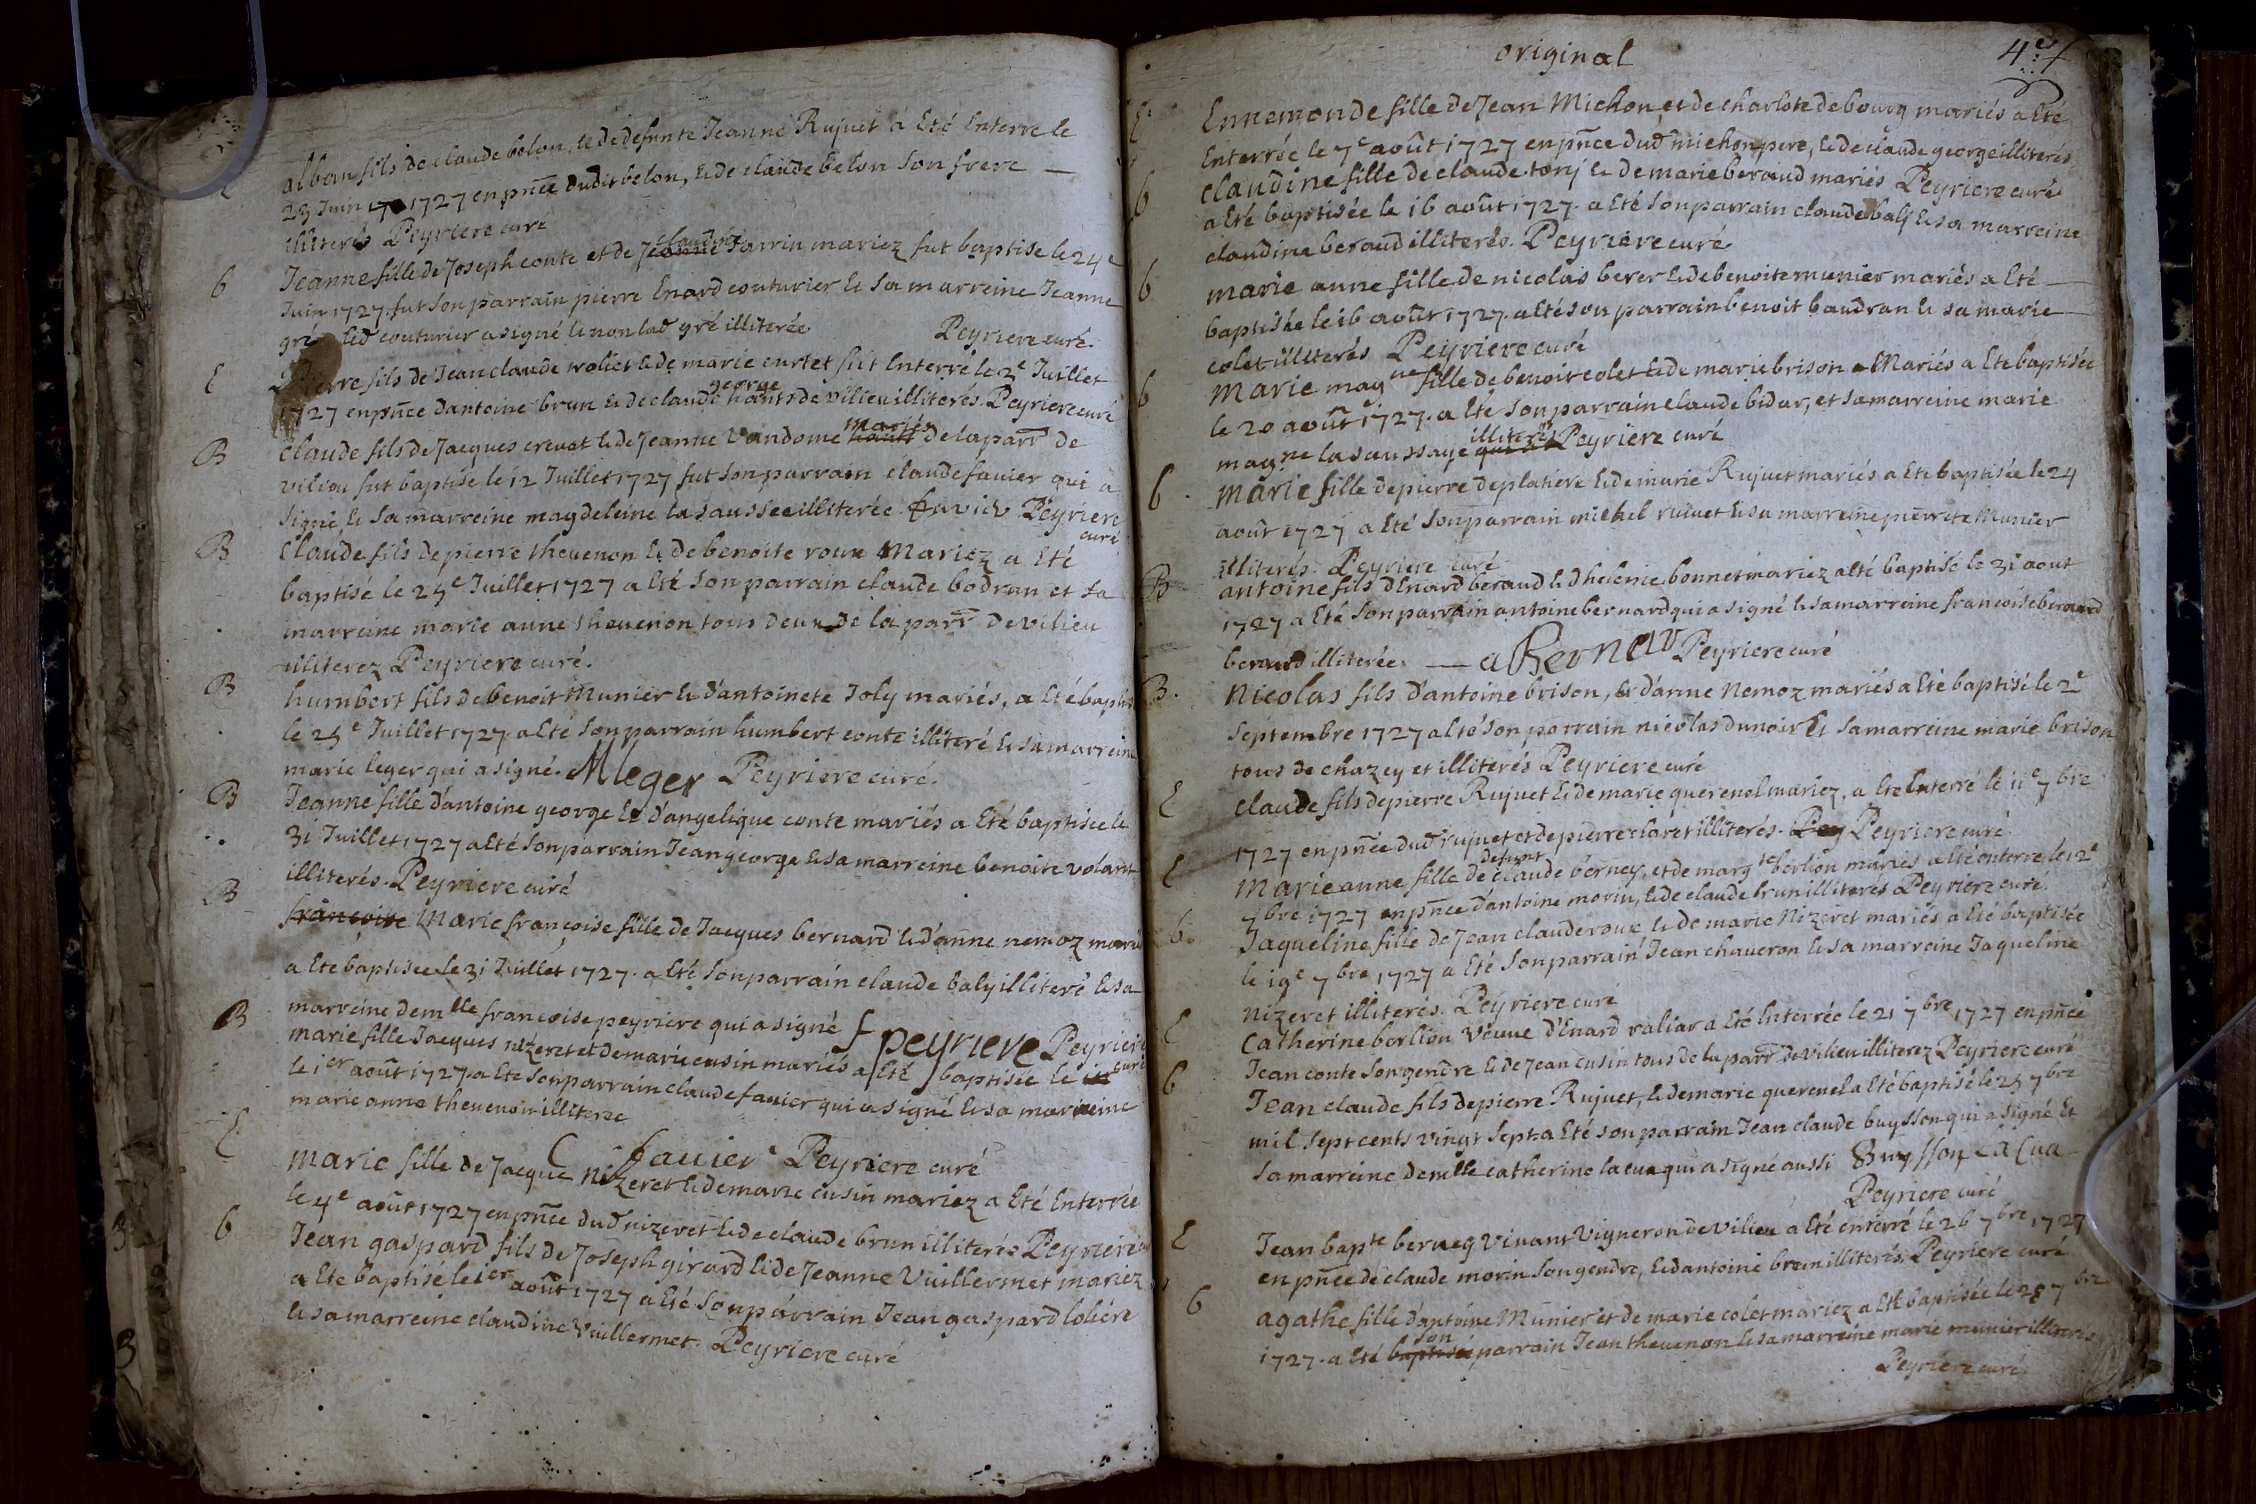 E
alban fils de claude belon, et de defunte Jeanne Rujuet a Eté Enterre le
23 Juin 1727 en pñce dudit belon, & de claude belon Son frere —
illiterés Peyriere curé
B
Jeanne fille de Joseph conte et de Jeanne claudine Sarrin mariez fut baptise le 24e
Juin 1727. fut Son parrain pierre Enard couturier & Sa marreine Jeanne
gré led couturier a signé & non lad gré illiterée Peyriere curé.
E
pierre fils de Jean claude rolict & de marie curtet fut Enterré le 2e Juillet
1727 en pñce dantoine brun & de claude george hants de vilieu illiterés. Peyriere curé
B
Claude fils de Jacques crevat & de Jeanne Vandome mariés hants de la parr de
vilieu fut baptisé le 12 Juillet 1727 fut Son parrain claude favier qui a
signé & Sa marreine magdeleine la saussée illiterée. favier Peyriere
curé
B
Claude fils de pierre thevenon & de benoite roux Mariez a Eté
baptisé le 25e Juillet 1727 a Eté Son parrain claude bodran et Sa
marreine marie anne thevenon tous deux de la parr de vilieu
illiterez Peyriere curé.
B
humbert fils de benoit Munier & d'antoinete Joly mariés, a Eté baptisé
le 25e Juillet 1727 a Eté Son parrain humbert conte illiteré & sa marreine
marie leger qui a signé. M leger Peyriere curé.
B
Jeanne fille d'antoine george & d'angelique conte mariés a Eté baptisée le
31 Juillet 1727 a Eté Son parrain Jean george & sa marreine benoite volant
illiterés. Peyriere curé
B
françoise Marie françoise fille de Jacques bernard & d'anne nemoz marié
a Eté baptisée le 31 Juillet 1727. a Eté Son parrain claude baly illiteré & sa
marreine demlle françoise peyriere qui a signé f peyriere Peyriere
curé
B
marie fille Jacques nizeret et de marie cusin mariés a Eté baptisée le
le 1er août 1727. a Eté Son parrain claude favier qui a signé & sa marreine
marie anne thevenon illiterée
C favier Peyriere curé
E
marie fille de Jacque nizeret & de marie cusin mariez a Eté Enterrée
le 4e août 1727 en pñce dud nizeret & de claude brun illiterés Peyriere
B
Jean gaspard fils de Joseph girard & de Jeanne Vuillermet mariez
a Eté baptisé le 1er août 1727 a Eté Son parrain Jean gaspard loliere
& sa marreine claudine Vuillermet. Peyriere curé
original
E
Ennemonde fille de Jean Michon et de charlote debourg mariés a Eté
Enterrée le 7e août 1727 en pñce dud michon pere, & de claude george illiterés
Peyriere curé
b
claudine fille de claude tonj & de marie beraud mariés
a Eté baptisée le 16 août 1727. a Eté Son parrain claude balj & sa marreine
claudine beraud illiterés. Peyriere curé
b
marie anne fille de nicolas berer & de benoite munier mariés a Eté —
baptisée le 16 août 1727. a Eté Son parrain benoit baudran & sa marie —
colet illiterés Peyriere curé
b
Marie magne fille de benoit colet & de marie brison Mariés a Eté baptisée
le 20 août 1727. a Eté Son parrain claude bidar, et Sa marreine marie
magne la saussaye illiterés Peyriere curé
b
Marie fille de pierre deplatiere & de marie Rujuet mariés a Eté baptisée le 24
août 1727 a Eté Son parrain michel rujuet & sa marreine pierrete Munier
illiterés. Peyriere curé
B
antoine fils d'Enard beraud & d'helenie bonnet mariez a Eté baptisé le 31 aout
1727 a Eté Son parrain antoine bernard qui a signé & sa marreine françoise beraud
beraud illiterée. — a Bernar Peyriere curé
B.
Nicolas fils d'antoine brison, & d'anne Nemoz mariés a Eté baptisé le 2e
Septembre 1727 a Eté Son parrain nicolas dunoir & Sa marreine marie brison
tous de chazey et illiterés Peyriere curé
E
Claude fils de pierre Rujuet & de marie querenel mariez, a Eté Enterré le 11e 7bre
1727 en pñce dud rujuet et de pierre claret illiterés. Pey Peyriere curé
E
Marie anne fille de defunt claude berney, et de margte berlion mariés a Eté enterré le 12e
7bre 1727 en pñce d'antoine morin, & de claude brun illiterés Peyriere curé.
b.
Jaqueline fille de Jean claude roux & de marie Nizeret mariés a Eté baptisée
le 19e 7bre 1727 a Eté Son parrain Jean chaveron & sa marreine Jaqueline
nizeret illiterés. Peyriere curé
E
Catherine berlion Veuve d'Enard valiar a Eté Enterrée le 21 7bre 1727 en pñce
Jean conte Son gendre & de Jean cusin tous de la parr de vilieu illiterez Peyriere curé
b
Jean claude fils de pierre Rujuet, & de marie querenel a Eté baptisé le 25 7bre
mil Sept cents vingt Sept a Eté son parrain Jean claude buysson qui a signé Et
Sa marreine demlle catherine la cua qui a signé aussi Buysson La Cua
Peyriere curé
E
Jean bapte berney Vivant Vigneron de Vilieu a Eté enterré le 26 7bre 1727
en pñce de claude morin Son gendre, & d'antoine brun illiterés, Peyriere curé
b
agathe fille d'antoine Munier et de marie colet mariez a Eté baptisée le 28 7bre
1727. a Eté baptisée son parrain Jean thevenon & sa marreine marie munier illiterés
Peyriere curé